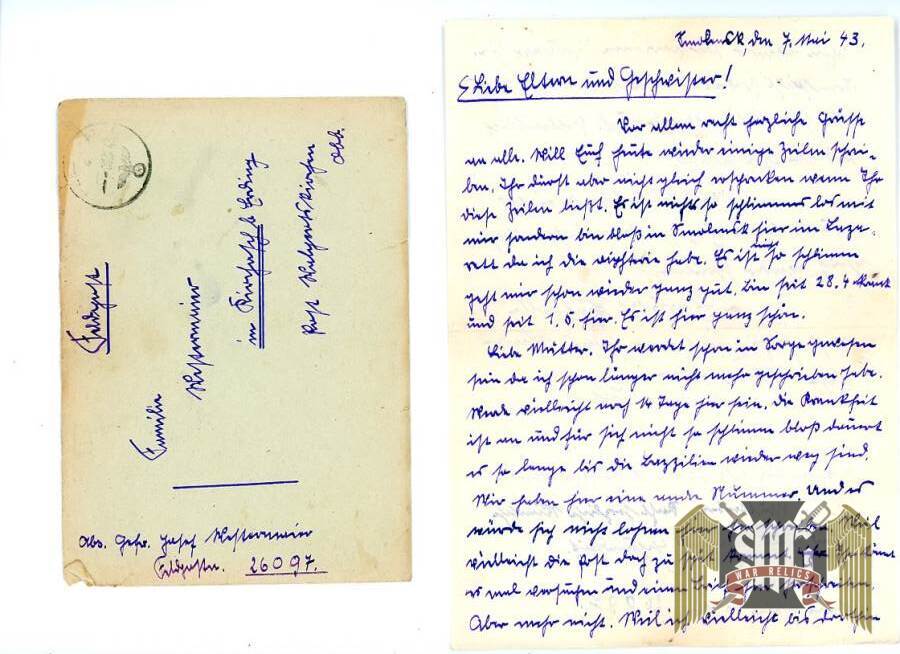 Feldpost
Familie
Westermeier
in Kirchasch b. Erding
Post Walpertskirchen
Obb.
Abs. Gefr. Josef Westermeier
Feldpostn. 26097.
Smolensk, den 7. Mai 43.
Liebe Eltern und Geschwister!
Vor allem recht herzliche Grüsse
an alle. Will Euch heute wieder einige Zeilen schrei-
ben. Ihr dürft aber nicht gleich erschrecken wenn Ihr
diese Zeilen ließt. Es ist nichts so schlimmes los mit
mir sondern bin bloß in Smolensk hier im Laza-
rett da ich die Diphterie habe. Es ist nicht so schlimm
geht mir schon wieder ganz gut. Bin seit 28.4 krank
und seit 1.5. hier. Es ist hier ganz schön.
Liebe Mutter. Ihr werdet schon in Sorge gewesen
sein da ich schon länger nicht mehr geschrieben habe.
Werde vielleicht noch 14 Tage hier sein. Die Krankheit
ist an und für sich nicht so schlimm bloß dauert
es so lange bis die Bazzilien wieder weg sind.
Wir haben hier eine andre Nummer. Und es
würde sich nicht lohnen Weil
vielleicht die Post doch zu spät
es mal versuchen und einen
Aber mehr nicht. Weil ich vielleicht bis dorthin
WAR RELICS